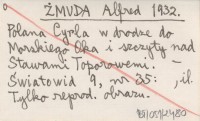 ŻMUDA Alfred 1932.
Polana Cyrla w drodze do
Morskiego Oka i szczyty nad
Stawami Toporowemi. -
Światowid 9, nr 35: , il.
Tylko reprod. obrazu.